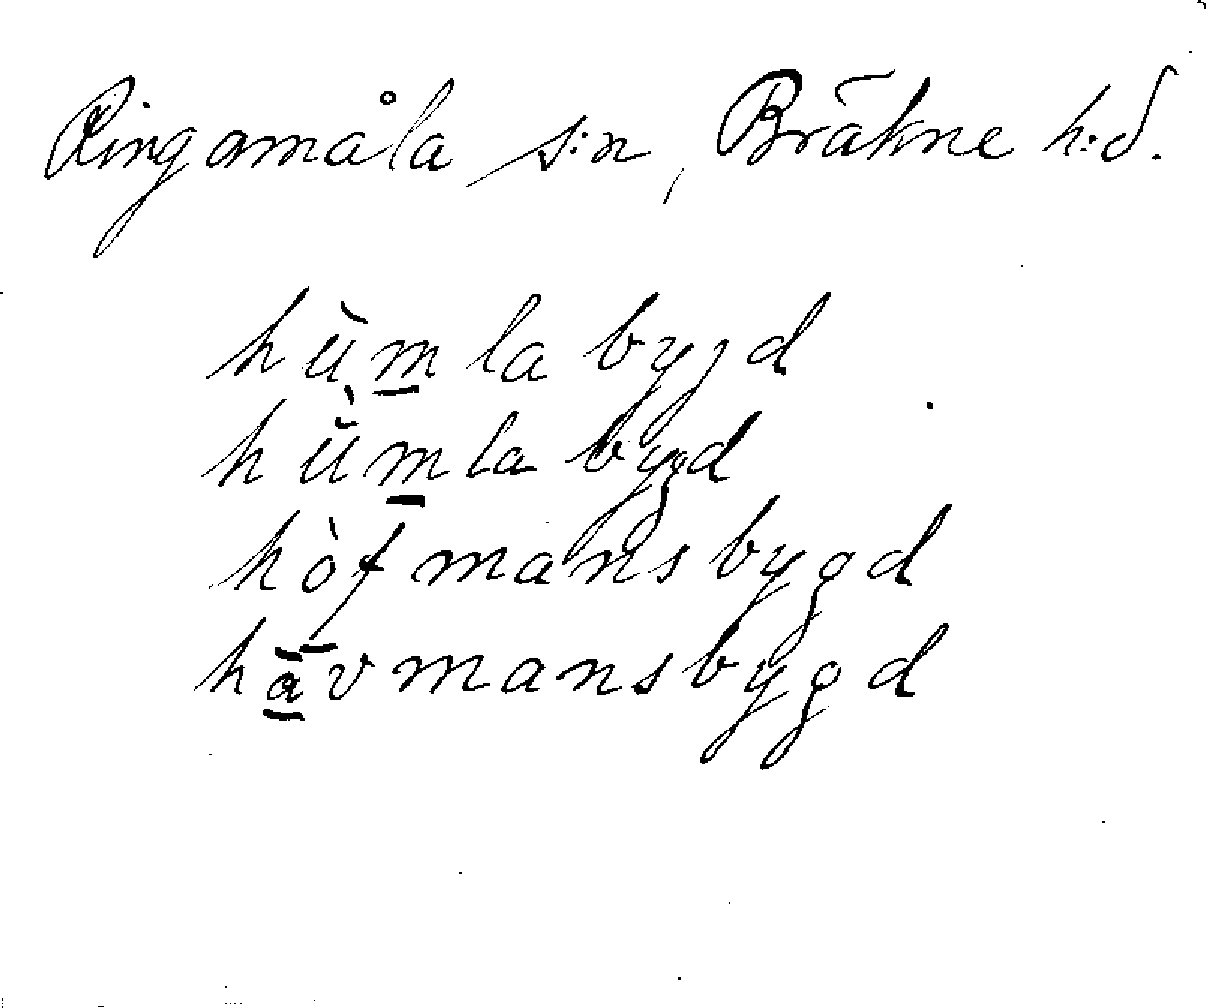 Ringamåla s:n, Bräkne h:d.
hùm̲labygd
hŭ̀m̲labygd
hòfmansbygd
hā̲vmansbygd